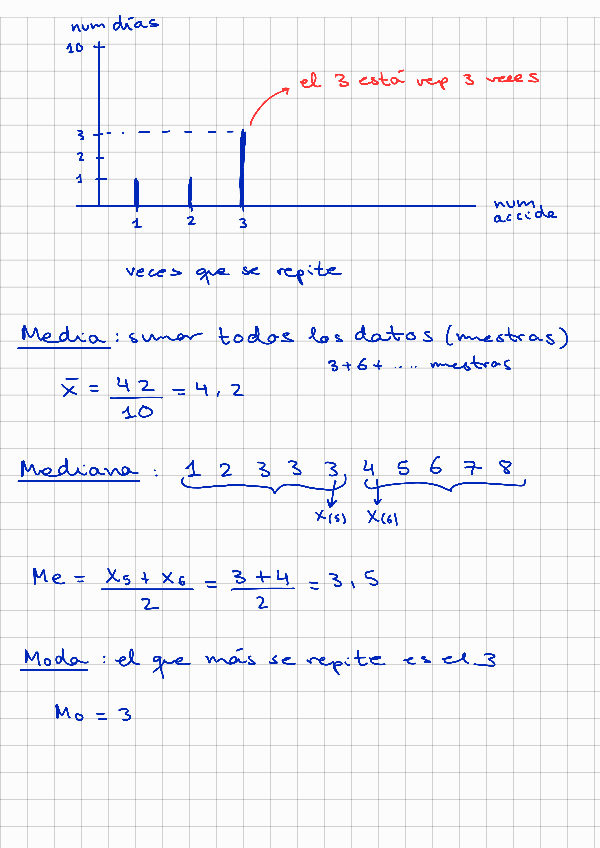 num días
10
el 3 está rep 3 veces
3
2
1
1 2 3
num
accide
veces que se repite
Media : sumar todos los datos (muestras)
3+6+ .... muestras
x̄ = 42/10 = 4,2
Mediana : 1 2 3 3 3, 4 5 6 7 8
X(5) X(6)
Me = X5 + X6/2 = 3+4/2 = 3,5
Moda : el que más se repite es el 3
Mo = 3